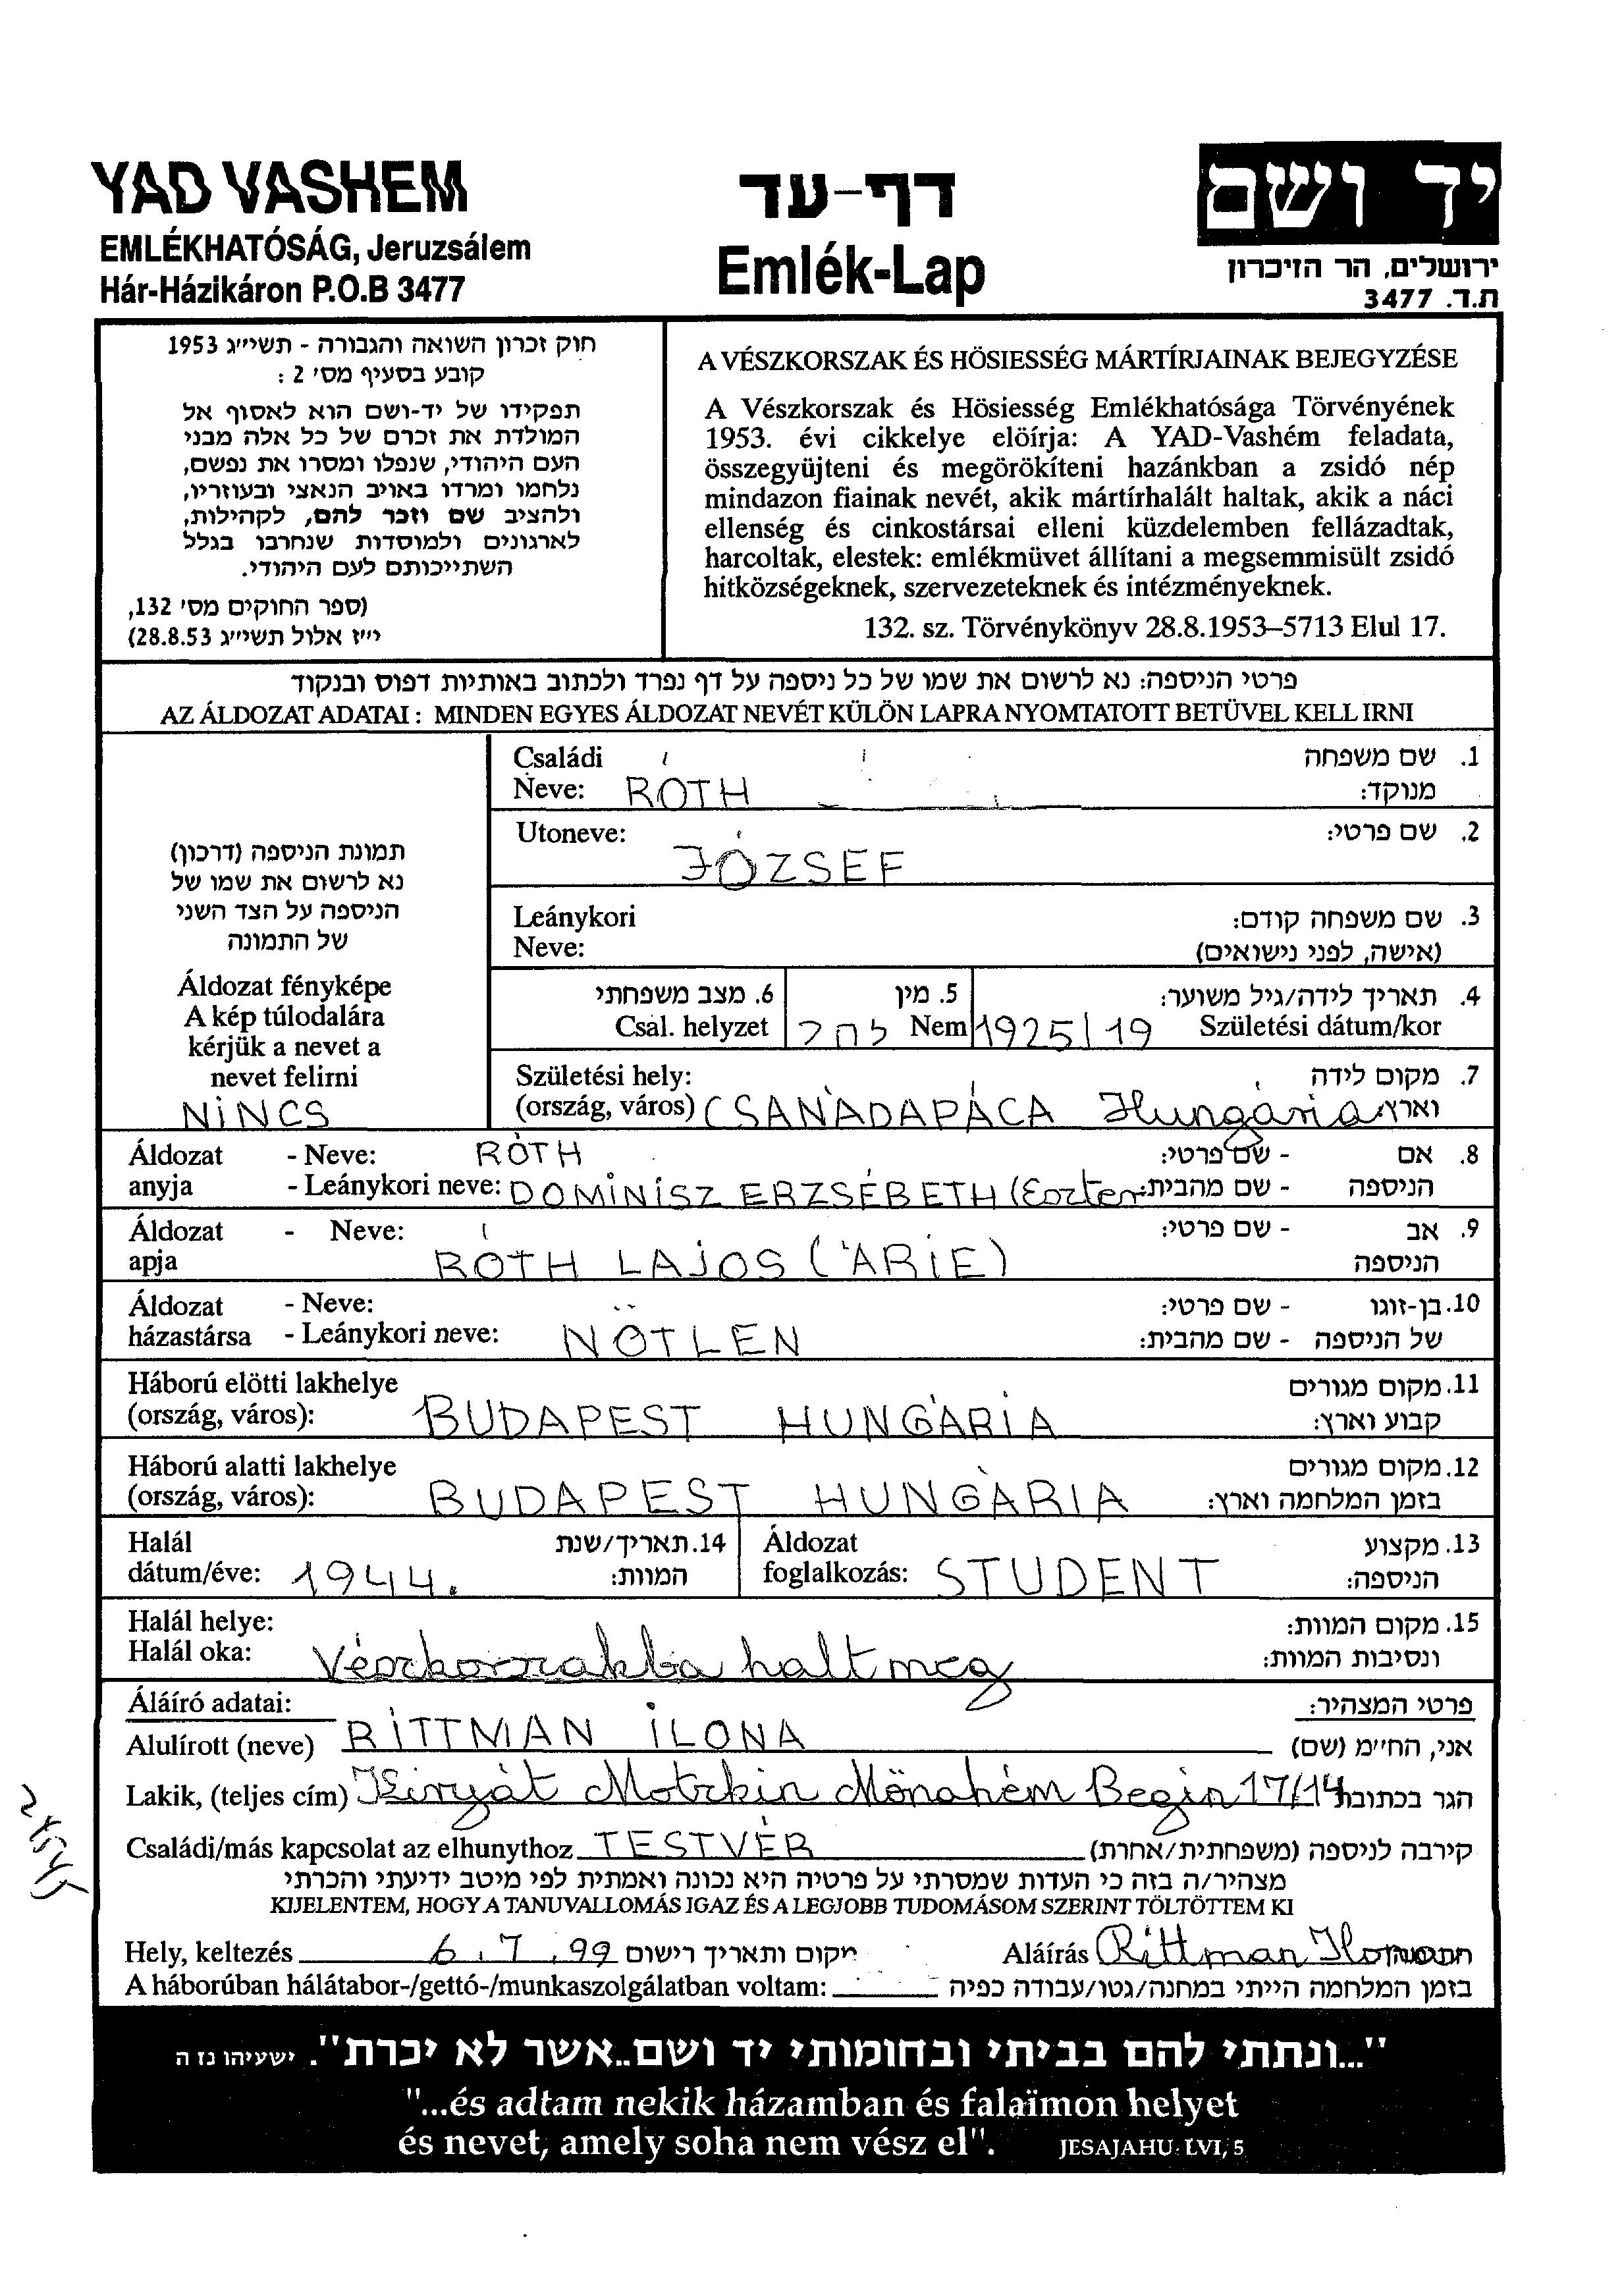 YAD VASHEM
EMLÉKHATÓSÁG, Jeruzsálem
Hár-Házikáron P.O.B 3477
דף-עד
Emlék-Lap
יד ושם
ירושלים, הר הזיכרון
ת.ד. 3477
חוק זכרון השואה והגבורה - תשי״ג 1953
קובע בסעיף מס׳ 2 :
תפקידו של יד-ושם הוא לאסוף אל
המולדת את זכרם של כל אלה מבני
העם היהודי, שנפלו ומסרו את נפשם,
נלחמו ומרדו באויב הנאצי ובעוזריו,
ולהציב שם וזכר להם, לקהילות,
לארגונים ולמוסדות שנחרבו בגלל
השתייכותם לעם היהודי.
(ספר החוקים מס׳ 132,
י״ז אלול תשי״ג 28.8.53)
A VÉSZKORSZAK ÉS HÖSIESSÉG MÁRTÍRJAINAK BEJEGYZÉSE
A Vészkorszak és Hösiesség Emlékhatósága Törvényének
1953. évi cikkelye elöírja: A YAD-Vashém feladata,
összegyüjteni és megörökíteni hazánkban a zsidó nép
mindazon fiainak nevét, akik mártírhalált haltak, akik a náci
ellenség és cinkostársai elleni küzdelemben fellázadtak,
harcoltak, elestek: emlékmüvet állítani a megsemmisült zsidó
hitközségeknek, szervezeteknek és intézményeknek.
132. sz. Törvénykönyv 28.8.1953–5713 Elul 17.
פרטי הניספה: נא לרשום את שמו של כל ניספה על דף נפרד ולכתוב באותיות דפוס ובנקוד
AZ ÁLDOZAT ADATAI : MINDEN EGYES ÁLDOZAT NEVÉT KÜLÖN LAPRA NYOMTATOTT BETÜVEL KELL IRNI
תמונת הניספה (דרכון)
נא לרשום את שמו של
הניספה על הצד השני
של התמונה
Áldozat fényképe
A kép túlodalára
kérjük a nevet a
nevet felirni
NINCS
Családi 1. שם משפחה
Neve: RÓTH מנוקד:
Utoneve: 2. שם פרטי:
JÓZSEF
Leánykori 3. שם משפחה קודם:
Neve: (אישה, לפני נישואים)
6. מצב משפחתי 5. מין 4. תאריך לידה/גיל משוער:
Csal. helyzet זכר Nem 1925/19 Születési dátum/kor
Születési hely: 7. מקום לידה
(ország, város) CSANÁDAPÁCA Hungária וארץ:
Áldozat - Neve: RÓTH - שם פרטי: 8. אם
anyja - Leánykori neve: DOMINISZ ERZSÉBETH (Eszter - שם מהבית: הניספה
Áldozat - Neve: - שם פרטי: 9. אב
apja RÓTH LAJOS (ARIE) הניספה
Áldozat - Neve: - שם פרטי: 10. בן-זוגו
házastársa - Leánykori neve: NÖTLEN - שם מהבית: של הניספה
Háború elötti lakhelye 11. מקום מגורים
(ország, város): BUDAPEST HUNGÁRIA קבוע וארץ:
Háború alatti lakhelye 12. מקום מגורים
(ország, város): BUDAPEST HUNGÁRIA בזמן המלחמה וארץ:
Halál 14. תאריך/שנת Áldozat 13. מקצוע
dátum/éve: 1944. המוות: foglalkozás: STUDENT הניספה:
Halál helye: 15. מקום המוות:
Halál oka: Vészkorszakba halt meg ונסיבות המוות:
Áláíró adatai: פרטי המצהיר:
Alulírott (neve) RITTMAN ILONA אני, החי״מ (שם)
Lakik, (teljes cím) Kiryát Motzkin Mönahém Begin 17/14 הגר בכתובת
Családi/más kapcsolat az elhunythoz TESTVÉR קירבה לניספה (משפחתית/אחרת)
מצהיר/ה בזה כי העדות שמסרתי על פרטיה היא נכונה ואמתית לפי מיטב ידיעתי והכרתי
KIJELENTEM, HOGY A TANUVALLOMÁS IGAZ ÉS A LEGJOBB TUDOMÁSOM SZERINT TÖLTÖTTEM KI
Hely, keltezés 6.7.99 מקום ותאריך רישום Aláírás Rittman Ilona
A háborúban hálátabor-/gettó-/munkaszolgálatban voltam: בזמן המלחמה הייתי במחנה/גטו/עבודה כפיה
"...ונתתי להם בביתי ובחומותי יד ושם..אשר לא יכרת". ישעיהו נז ה
"...és adtam nekik házamban és falaïmon helyet
és nevet, amely soha nem vész el". JESAJAHU: LVI, 5